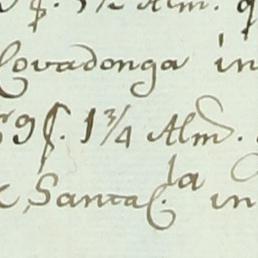 p. 3 1/2 Alm.
Covadonga in
9 p. 1 3/4 Alm.
Santa C.la in